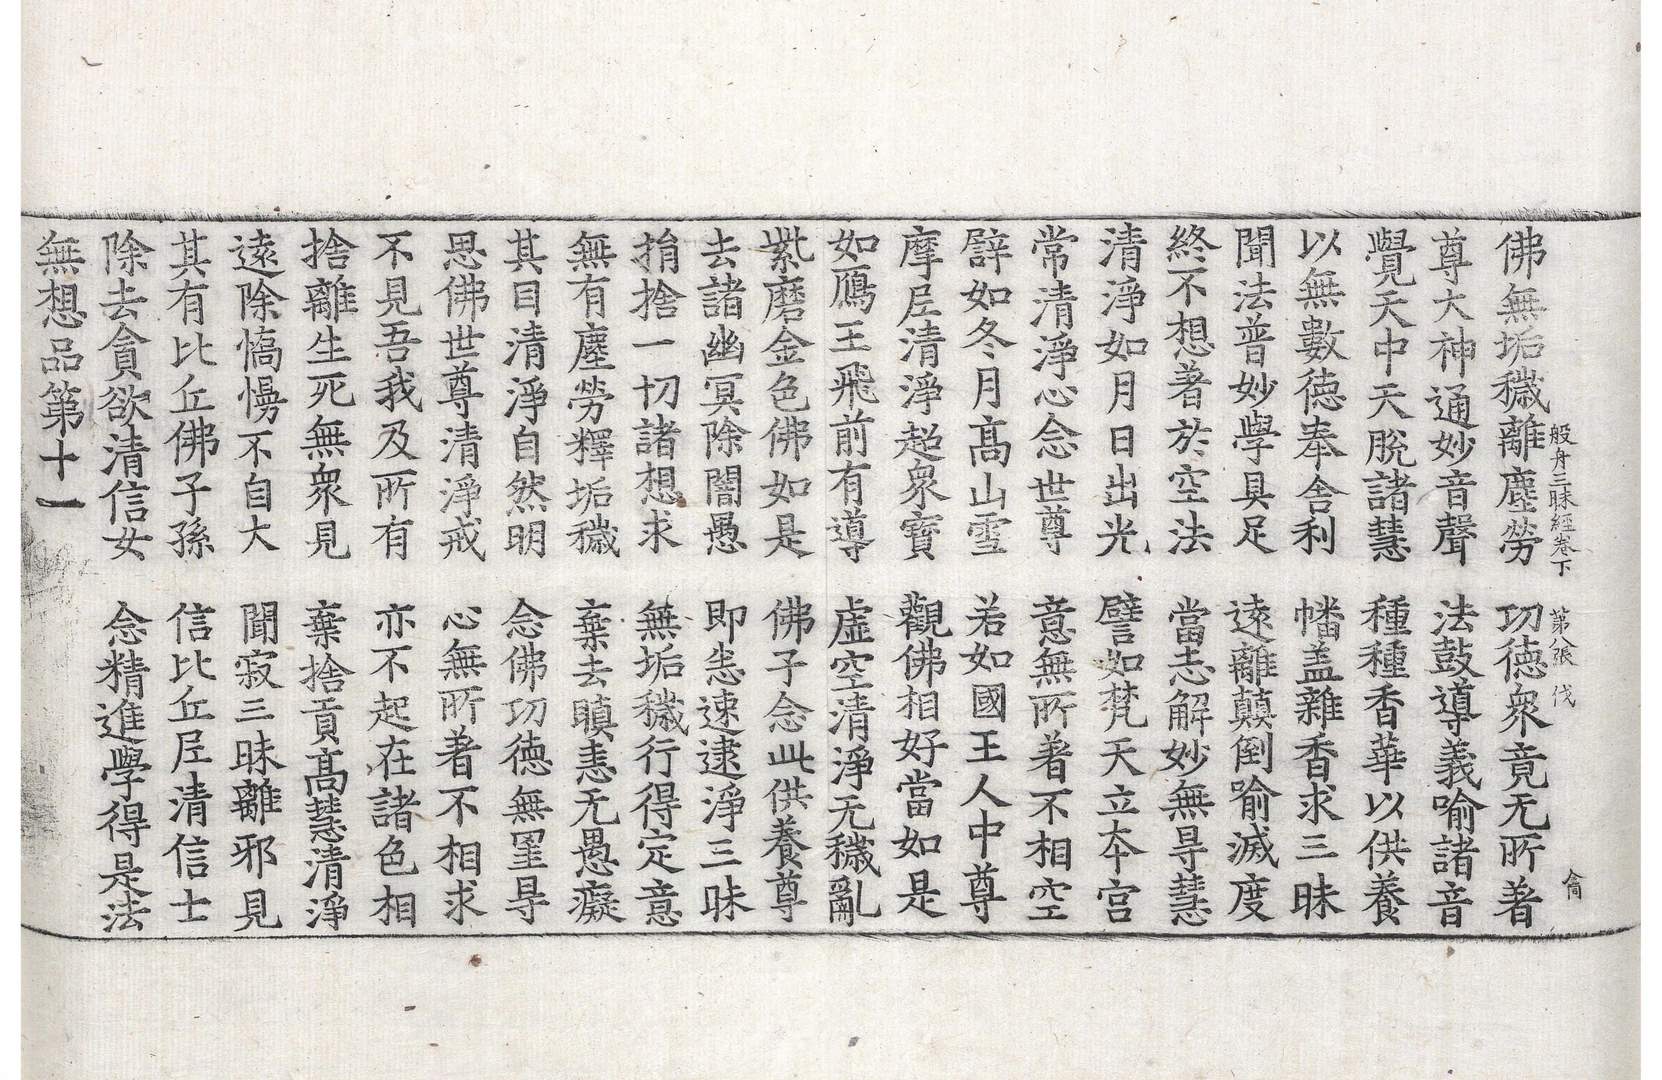 佛無垢穢離塵勞　功德衆竟无所著
般舟三昧經卷下　第八張　伐
尊大神通妙音聲　法鼓導義喻諸音
覺天中天脫諸慧　種種香華以供養
以無數德奉舍利　幡盖雜香求三昧
聞法普妙學具足　遠離顛倒喻滅度
終不想著於空法　當志解妙無㝵慧
清淨如月日出光　譬如梵天立本宮
常清淨心念世尊　意無所著不相空
譬如冬月高山雪　若如國王人中尊
摩尼清淨超衆寶　觀佛相好當如是
如鴈王飛前有導　虛空清淨无穢亂
紫磨金色佛如是　佛子念此供養尊
去諸幽冥除闇愚　即恙速逮淨三昧
捐捨一切諸想求　無垢穢行得定意
無有塵勞釋垢穢　棄去瞋恚无愚癡
其目清淨自然明　念佛功德無罣㝵
思佛世尊清淨戒　心無所著不相求
不見吾我及所有　亦不起在諸色相
捨離生死無衆見　棄捨貢高慧清淨
遠除憍慢不自大　聞寂三昧離邪見
其有比丘佛子孫　信比丘尼清信士
除去貪欲清信女　念精進學得是法
無想品第十一